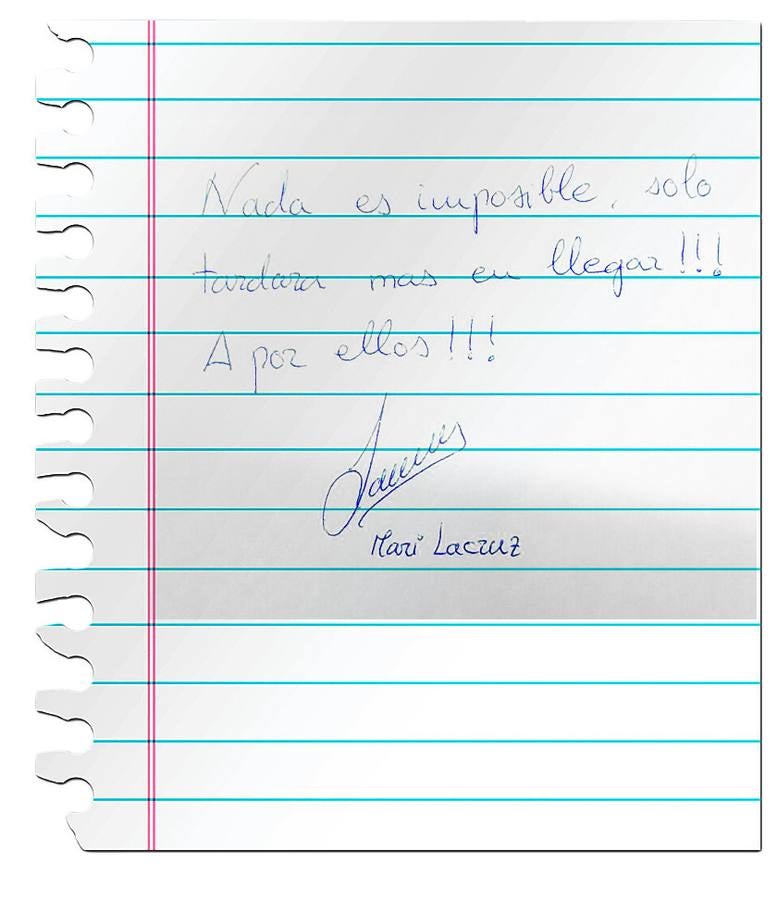 Nada es imposible, solo
tardara mas en llegar!!!
A por ellos!!!
Mari Lacruz